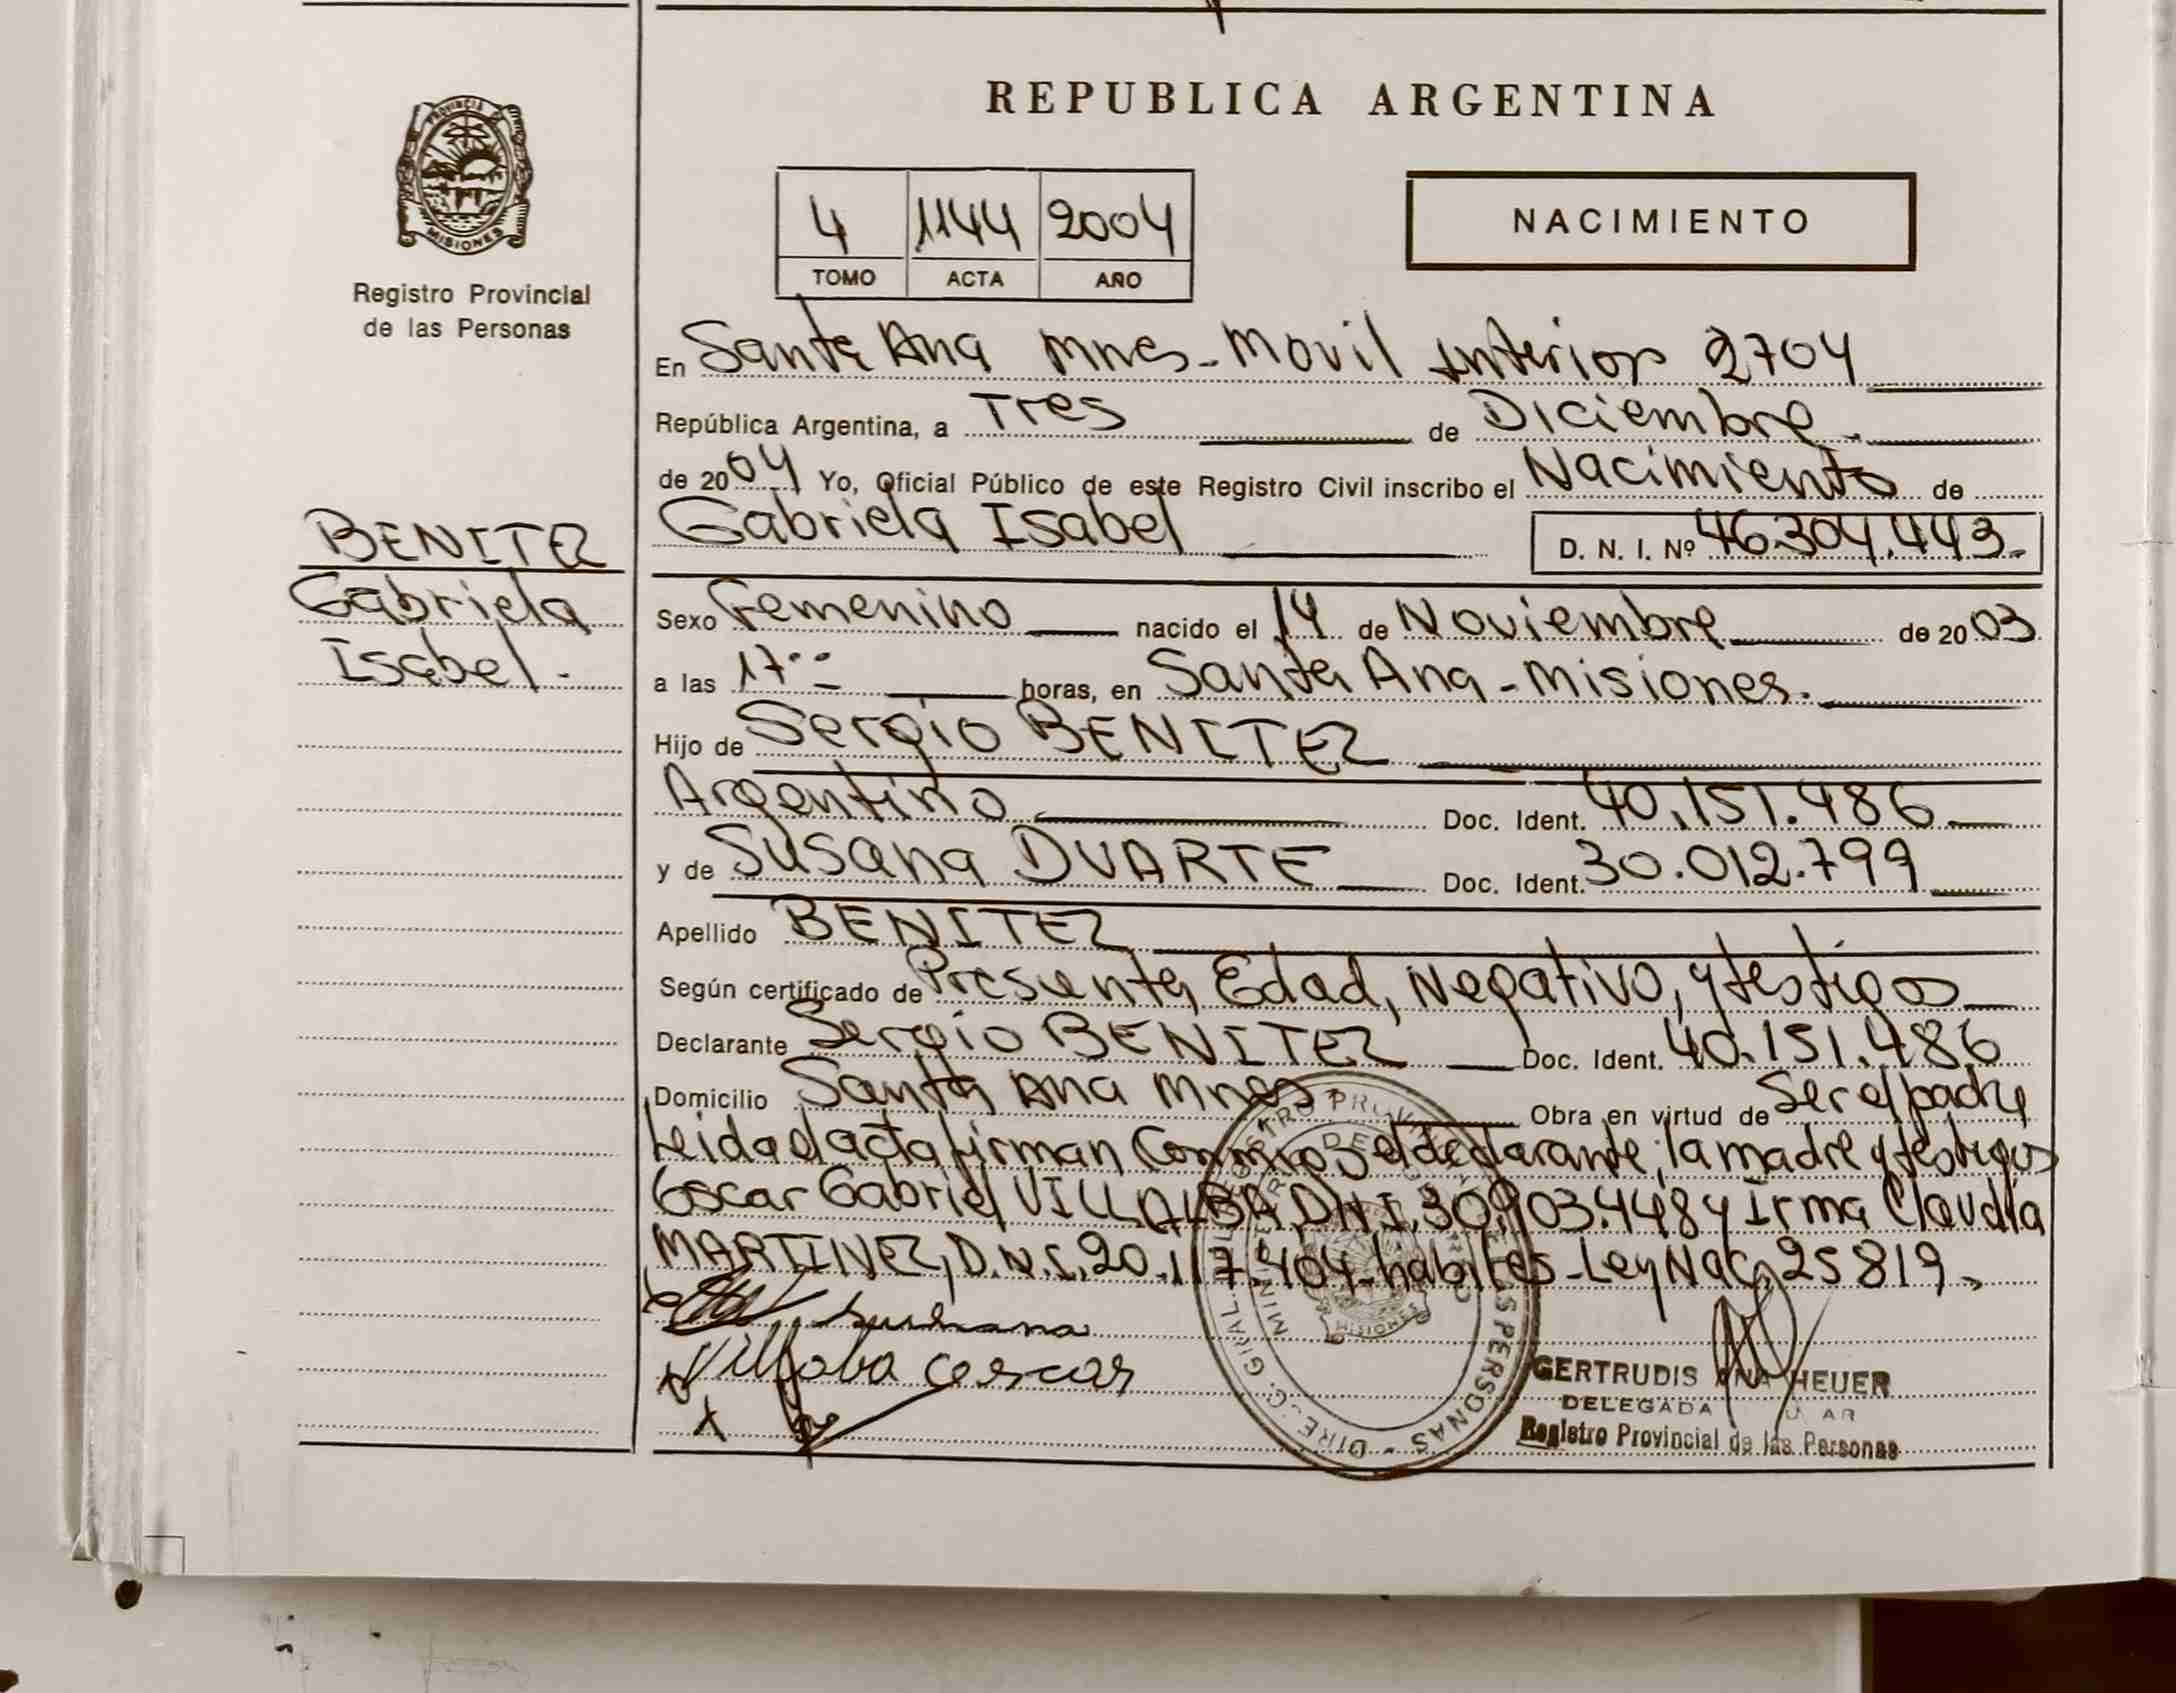 REPUBLICA ARGENTINA
PROVINCIA DE
MISIONES
Registro Provincial
de las Personas
4 1144 2004
TOMO ACTA AÑO
NACIMIENTO
En Santa Ana Mnes - Movil Interior 2704
República Argentina, a Tres de Diciembre
de 2004 Yo, Oficial Público de este Registro Civil inscribo el Nacimiento de
Gabriela Isabel D. N. I. Nº 46.304.443.-
BENITEZ
Gabriela
Isabel.-
Sexo Femenino nacido el 14 de Noviembre de 2003
a las 17 horas, en Santa Ana - Misiones.
Hijo de Sergio BENITEZ
Argentino Doc. Ident. 40.151.486
y de Susana DUARTE Doc. Ident. 30.012.799
Apellido BENITEZ
Según certificado de Presunta Edad, Negativo, y testigos
Declarante Sergio BENITEZ Doc. Ident. 40.151.486
Domicilio Santa Ana Mnes Obra en virtud de Ser el padre
Leida el acta firman Conmigo el declarante, la madre y testigos
Oscar Gabriel VILLALBA, D.N.I. 30.903.448 y Irma Claudia
MARTINEZ, D.N.I. 20.117.404 - habiles - Ley Nac. 25819.
Villalba Oscar
GERTRUDIS ANA HEUER
DELEGADA
Registro Provincial de las Personas